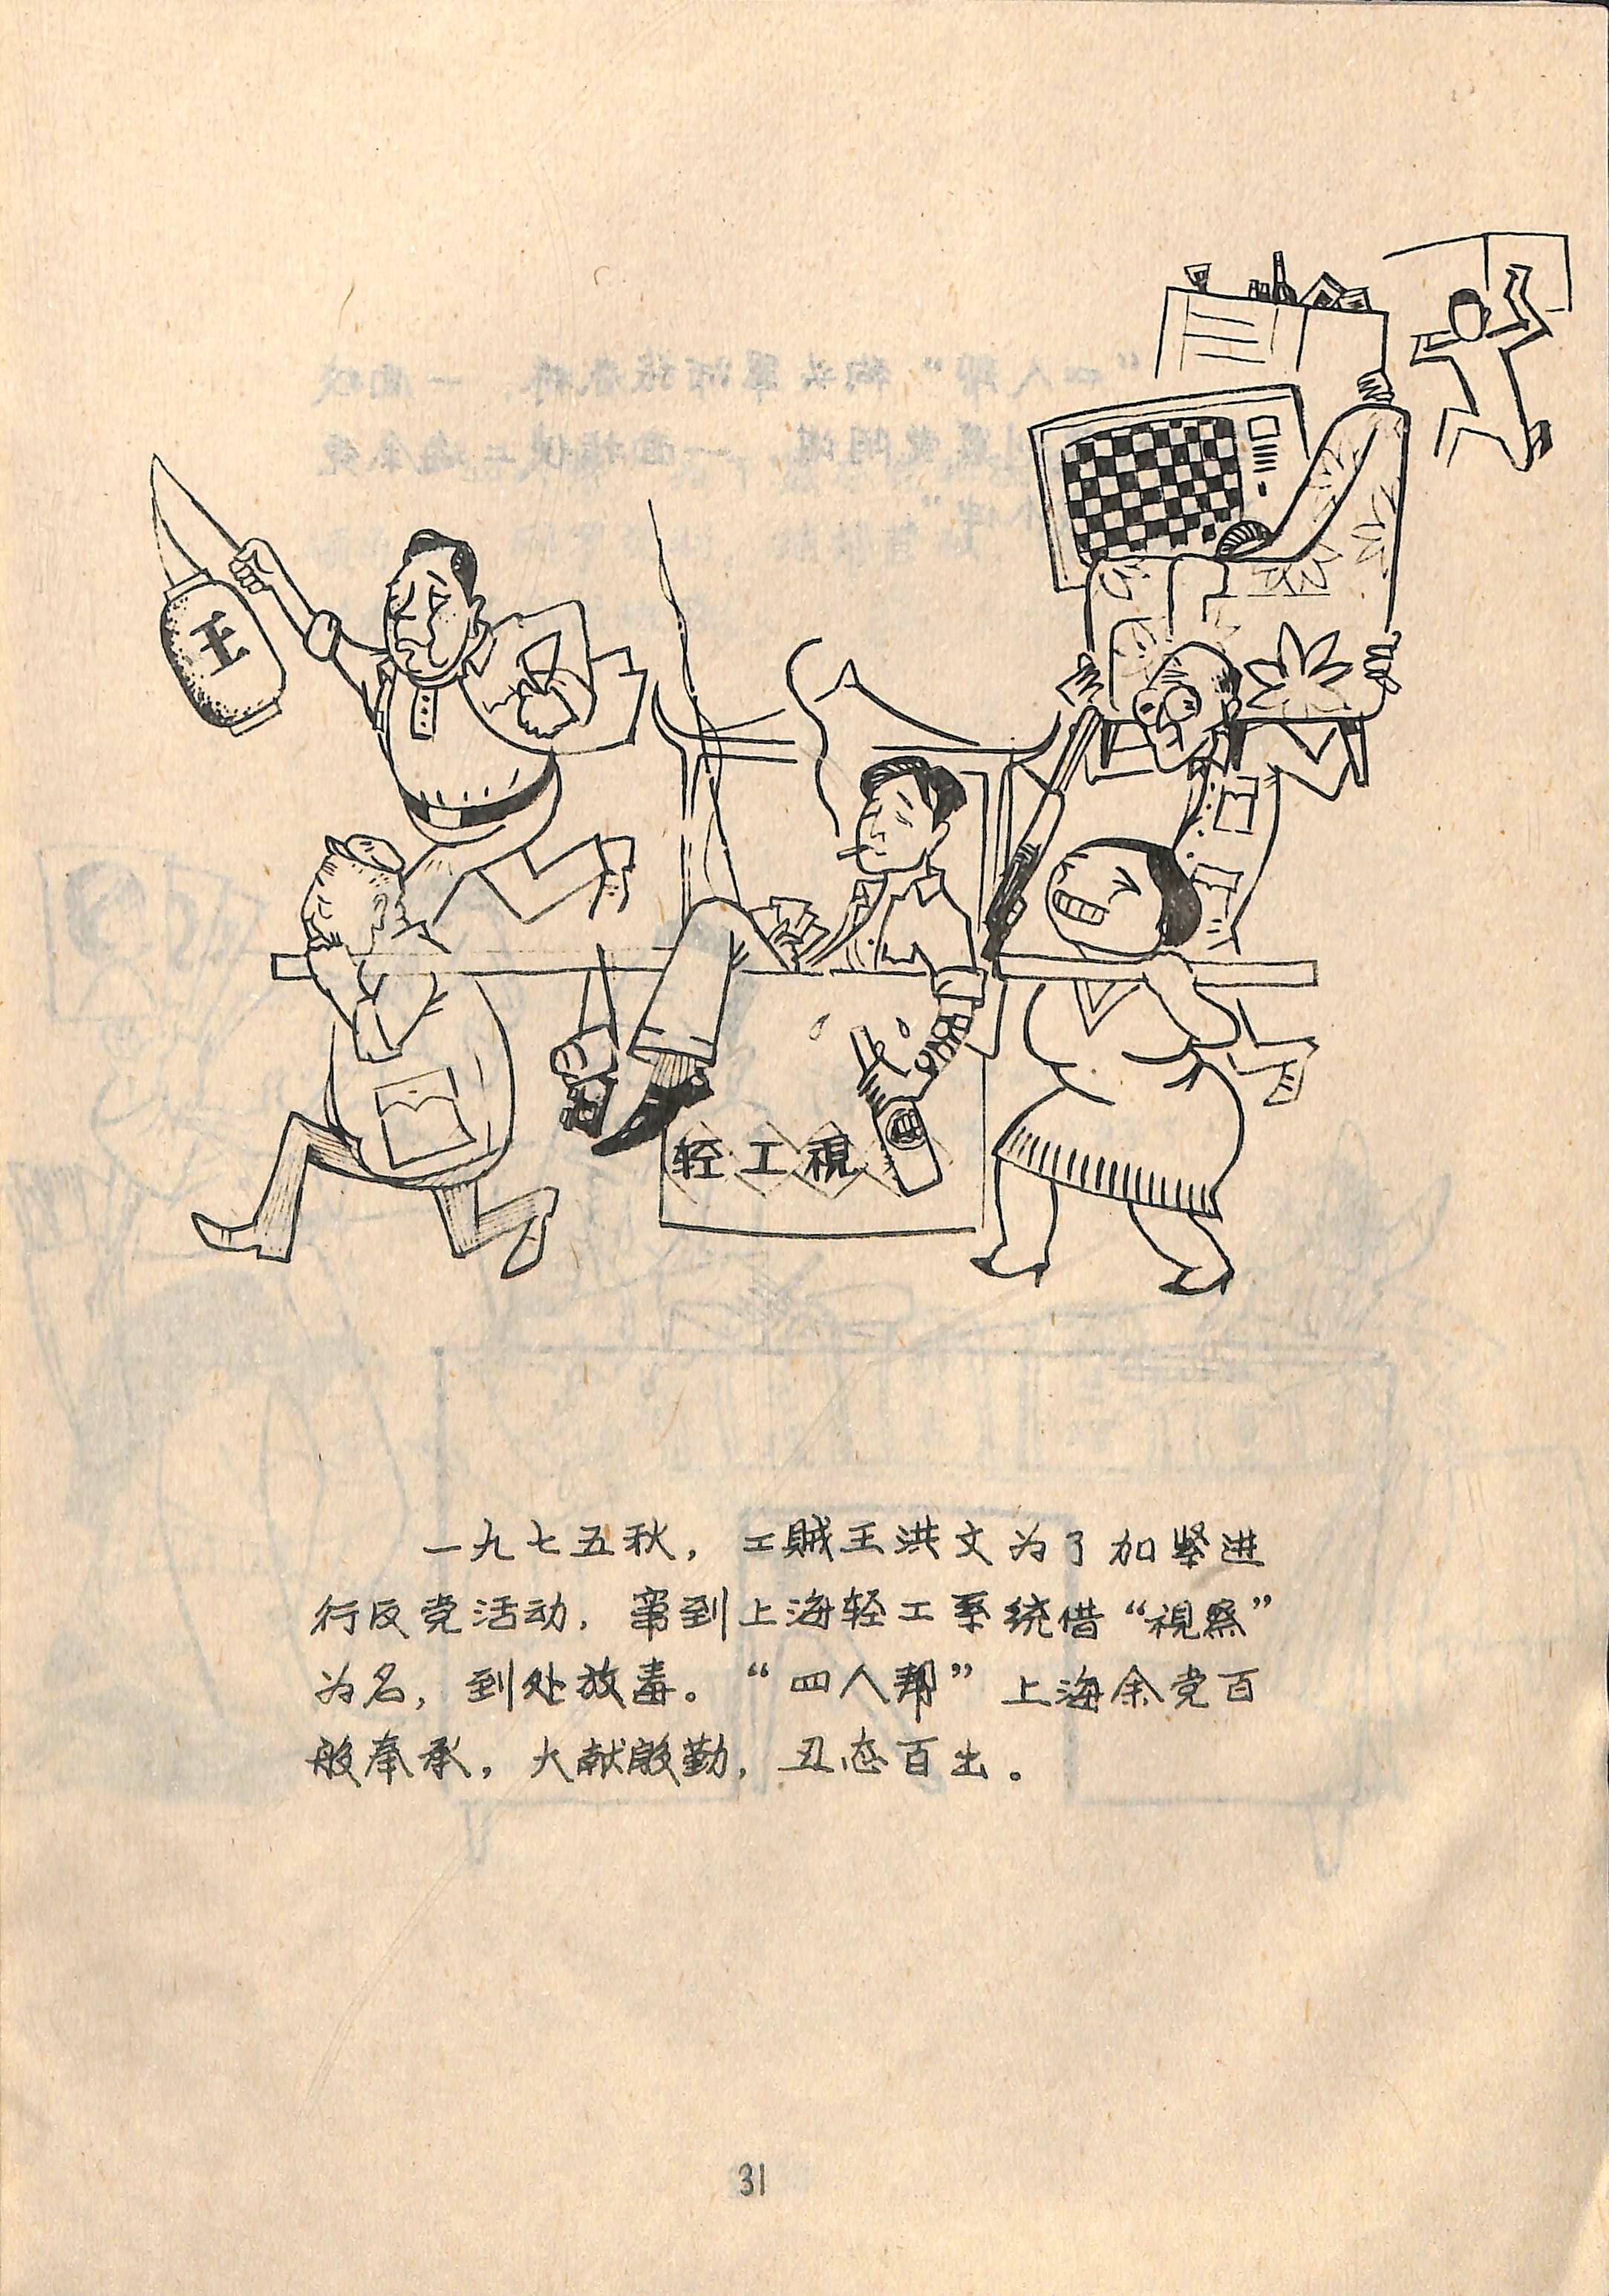 王
轻工視
一九七五秋，工賊王洪文为了加紧进
行反党活动，窜到上海轻工系统借“視察”
为名，到处放毒。“四人帮”上海余党百
般奉承，大献殷勤，丑态百出。
31